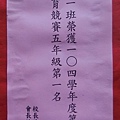 一班榮獲一〇四學年度第
育競賽五年級第一名
校長
會長